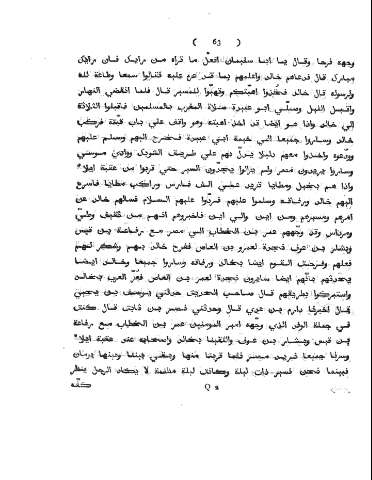 ( 63 )
وجهه فرحا وقال يا ابا سليمان افعل ما تراه من رايك فان رايك
مبارك قال فدعاهم خالد واعلمهم بما قد عزم عليه فقالوا سمعا وطاعة لله
ولرسوله قال خالد فخذوا اهبتكم وتهيّوا للمسير قال فلما انقضى النهار
واقبل الليل وصلّى ابو عبيدة صلاة المغرب بالمسلمين فاقبلوا الثلاثة
الى خالد واذا هو ايضا قد اخذ اهبته وهو واقف على باب قبّته فركب
خالد وساروا جميعا الى خيمة ابى عبيدة فخرج اليهم وسلم عليهم
وودعوه واخذوا معهم دليلا يدلّ بهم على طريق الشوبك ووادى موسى
وساروا يريدون مصر ولم يزالوا يجدّون السير حتى قربوا من عقبة ايلا*
واذا هم بخيل ومطايا تزيد على الف فارس وراكب مطايا فاسرع
اليهم خالد ورفاقه وسلموا عليهم فردّوا عليهم السلام فسالهم خالد عن
امرهم ومسيرهم ومن اين والى اين فاخبروهم انهم من ثقيف وطىّ
ومرداس وقد وجّههم عمر بن الخطاب الى مصر مع رفاعة بن قيس
وبشار بن عوف نجدة لعمرو بن العاص ففرح خالد بهم وشكر لهم
فعلهم وفرحت القوم ايضا بخالد ورفاقه وساروا جميعا وخالد ايضا
يحدثهم بانّهم ايضا سايرون نجدة لعمر بن العاص ففرّ العرب بخالد
واستبركوا بطريقهم قال صاحب الحديث حدثنى يوسف بن يحيى
وقال اخبرنا دارم بن عدى قال وحدثنى نصر بن ثابت قال كنت
فى جملة الوفد الذى وجهه امير المومنين عمر بن الخطاب مع رفاعة
بن قيس وبشار بن عوف والتقينا بخالد واصحابه على عقبة ايلا*
وسرنا جميعا نريد مصر فلما قربنا منها وبقى بيننا وبينها يومان
فبينما نحن نسير ذات ليلة وكانت ليلة مظلمة لا يكاد الرجل ينظر
كفّه